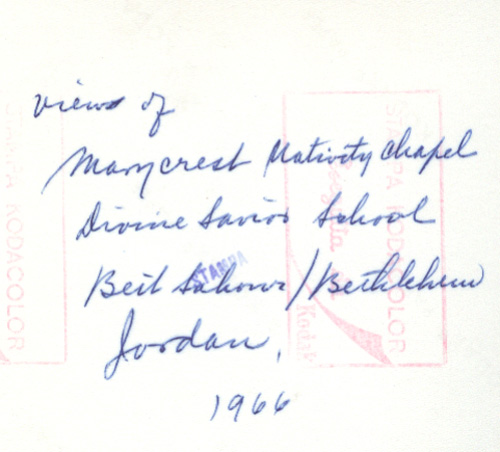 views of
Marycrest Nativity Chapel
Divine Savior School
Beit Sahour / Bethlehem
Jordan,
1966
STAMPA
STAMPA KODACOLOR
Kodak
STAMPA KODACOLOR